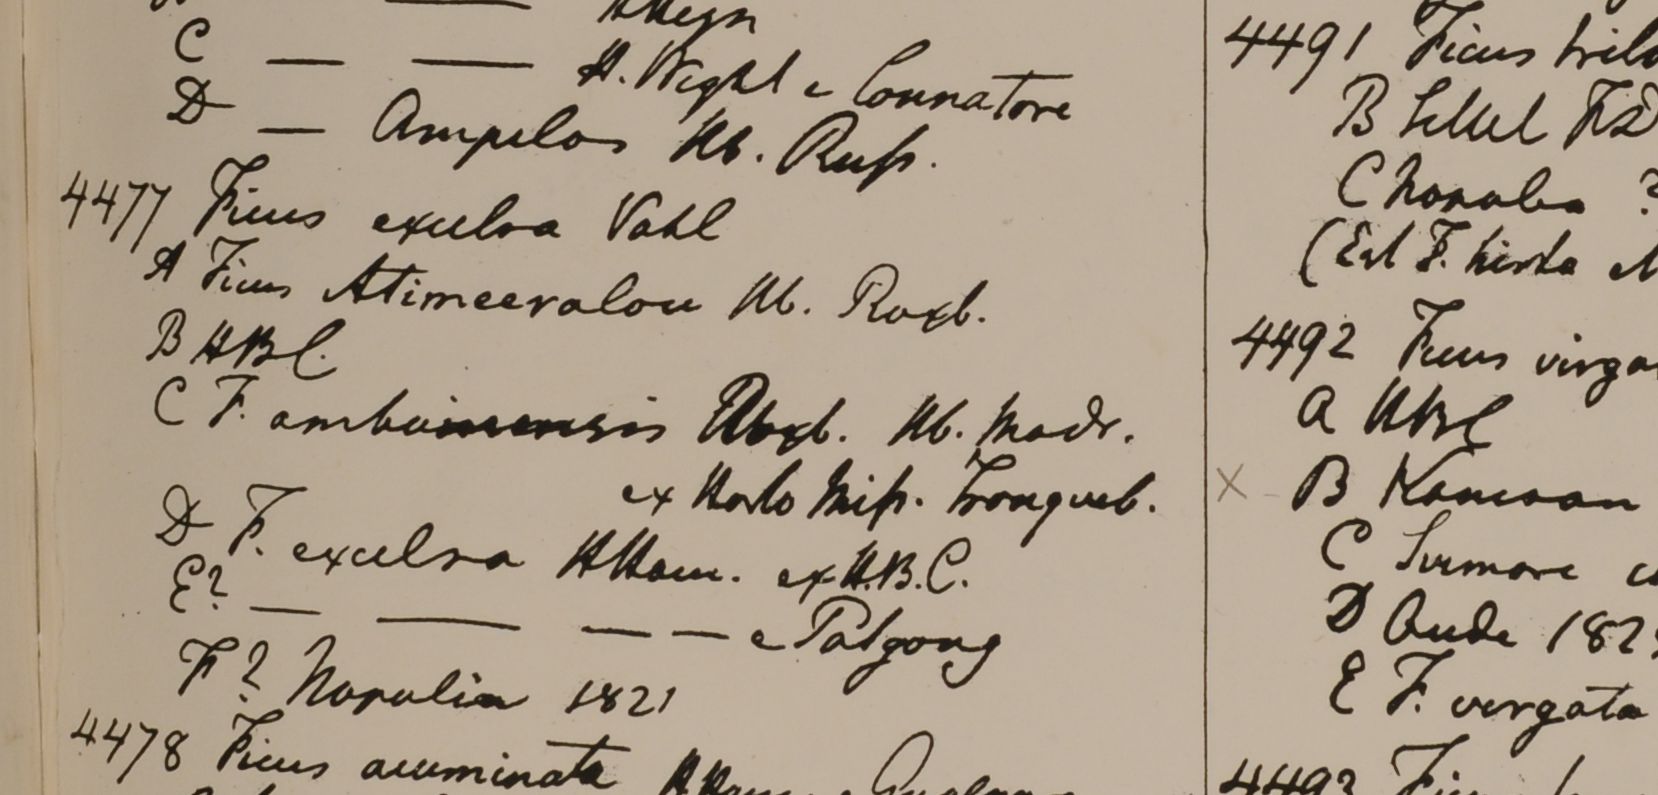 C — — H. Wight e Connatore
D — Ampelos Hb. Russ.
4477 Ficus excelsa Vahl
A Ficus Atimeeralou Hb. Roxb.
B HBC.
C F. amboinensis Roxb. Hb. Madr.
ex Horto Miss. Tranqueb.
D F. excelsa HHam. ex H.B.C.
E? — — — — e Patgong
F? Napalia 1821
4478 Ficus acuminata HHam. e
4491 Ficus
B Sillet FD
C Napalia ?
(Est F. hirta
4492 Ficus
A HBC
B Kamoan
C
D Oude 182
E F. virgata
4493